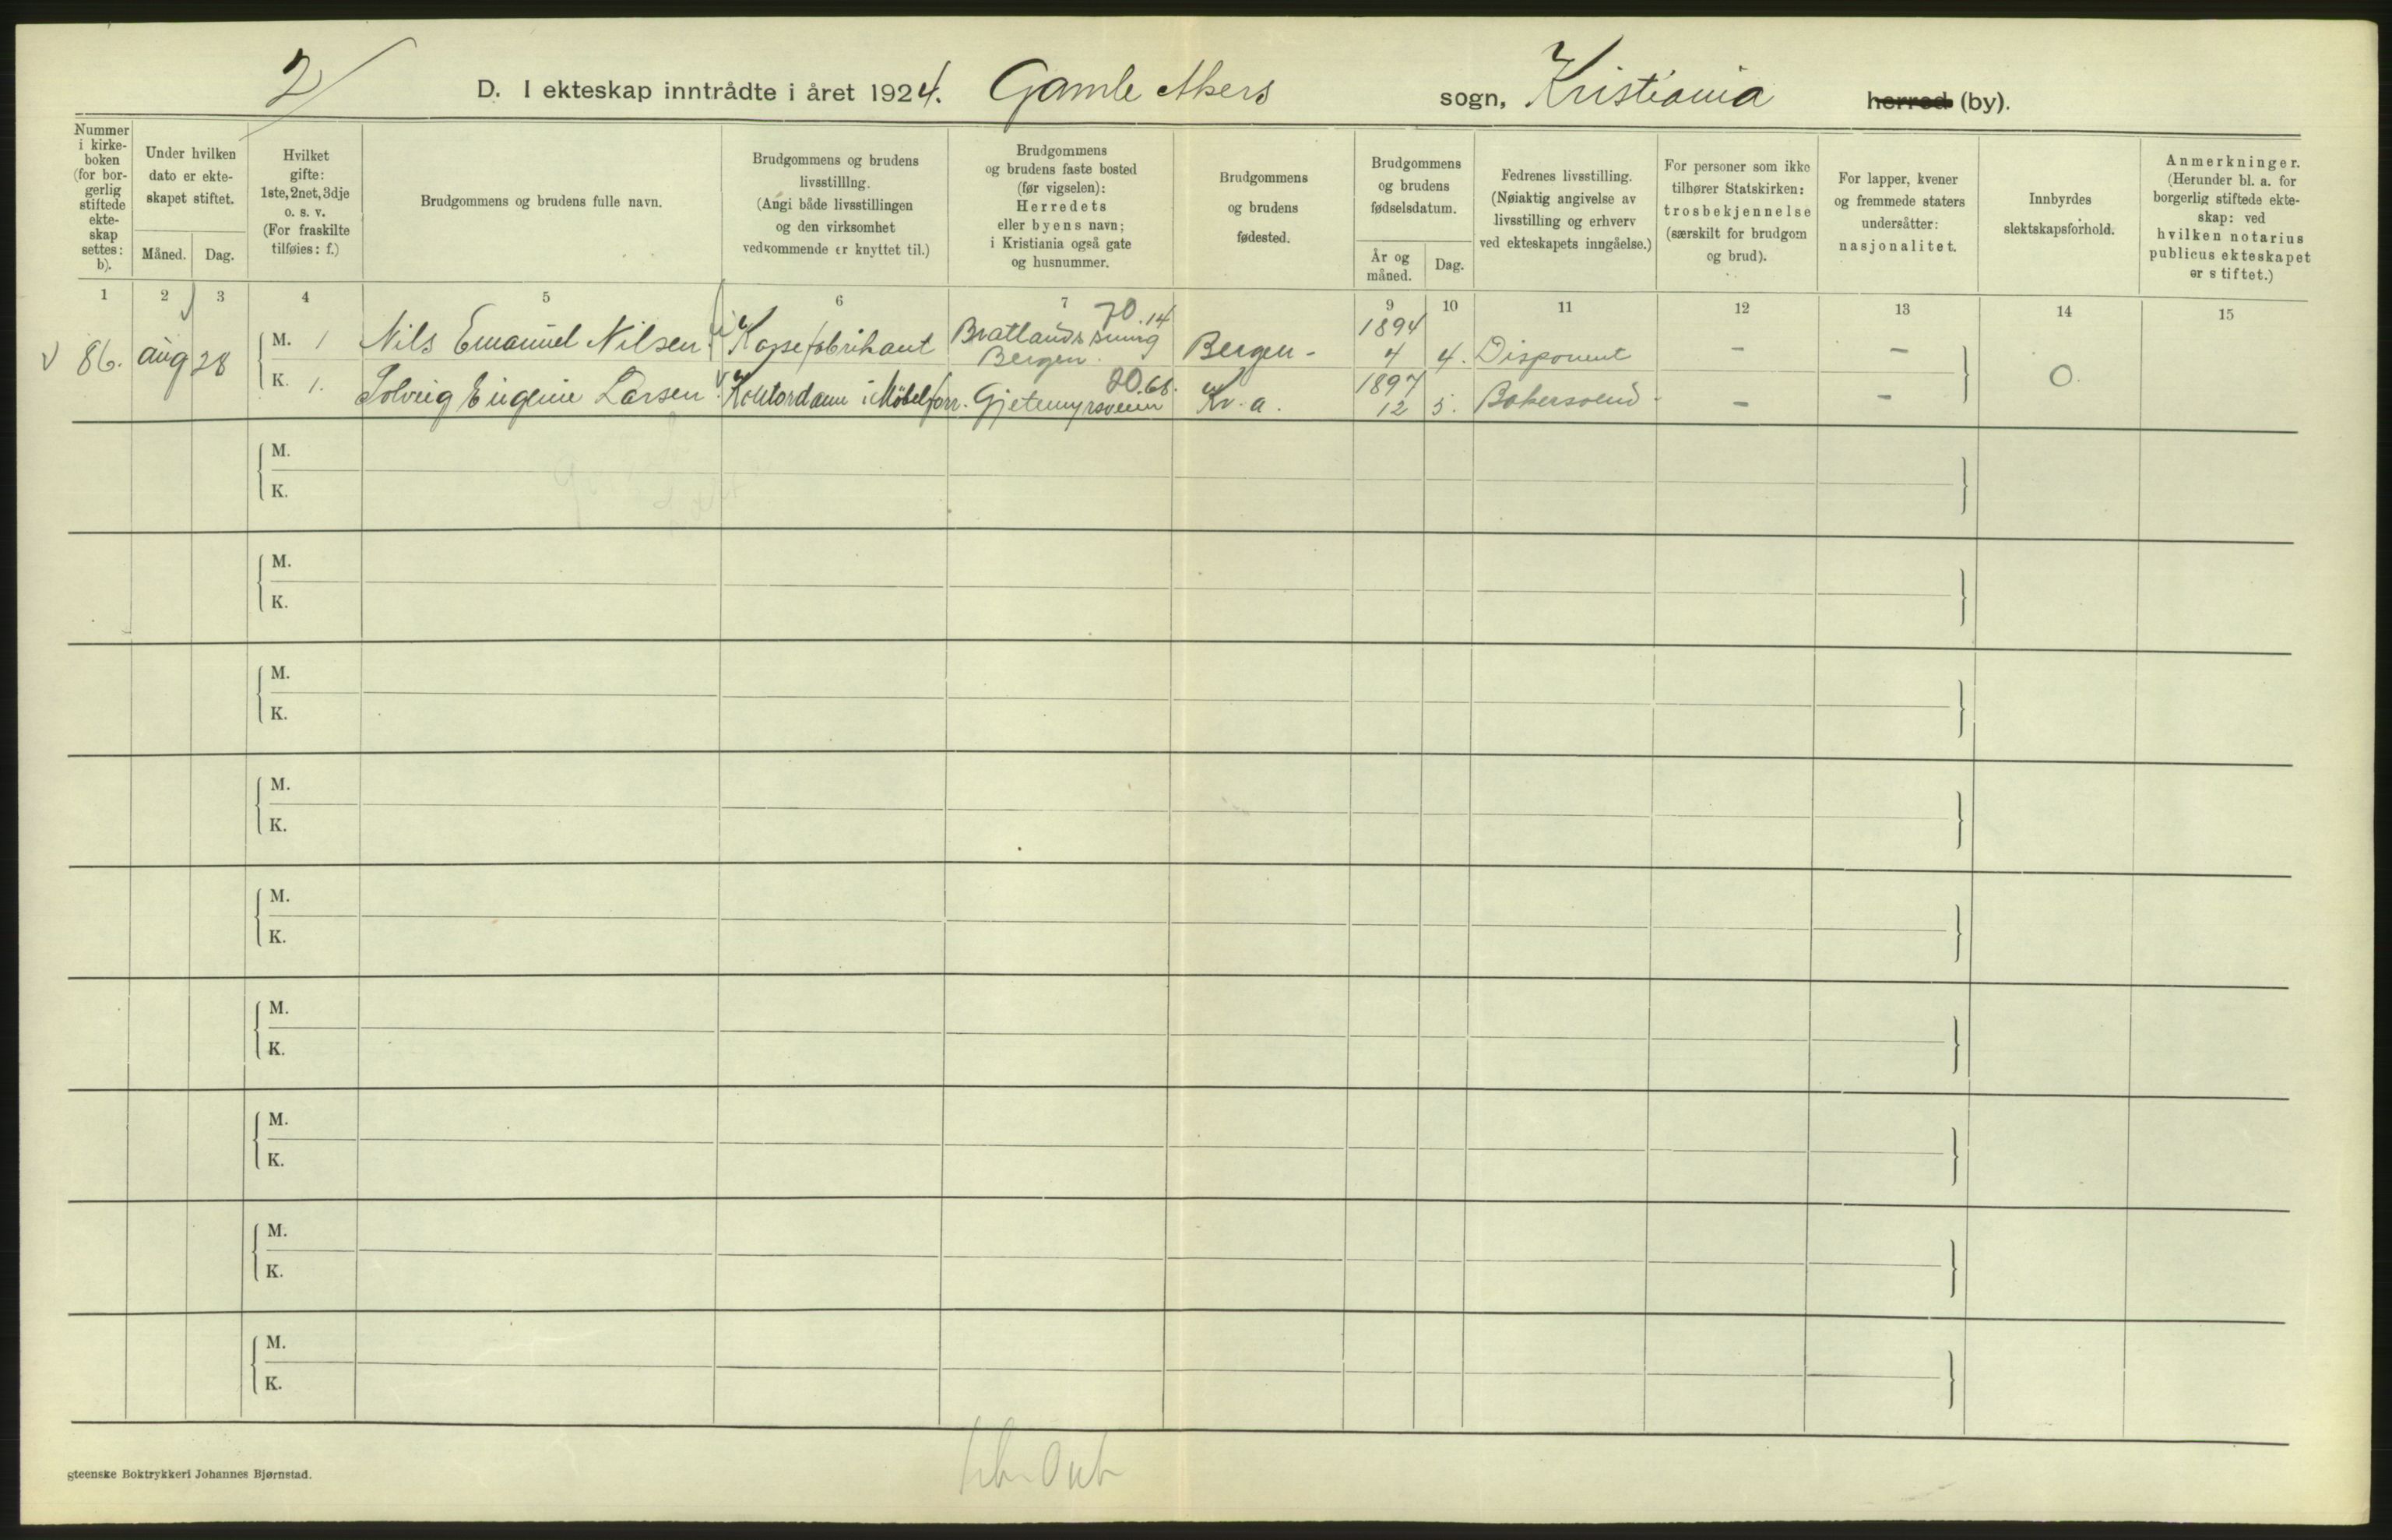 2
D. I ekteskap inntrådte i året 1924. Gamle Akers sogn, Kristiania herred (by).
Nummer i kirke-boken (for bor-gerlig stiftede ekte-skap settes: b).
Under hvilken dato er ekte-skapet stiftet.
Måned. Dag.
Hvilket gifte: 1ste, 2net, 3dje o. s. v. (For fraskilte tilføies: f.)
Brudgommens og brudens fulle navn.
Brudgommens og brudens livsstilling. (Angi både livsstillingen og den virksomhet vedkommende er knyttet til.)
Brudgommens og brudens faste bosted (før vigselen): Herredets eller byens navn; i Kristiania også gate og husnummer.
Brudgommens og brudens fødested.
Brudgommens og brudens fødselsdatum.
År og måned. Dag.
Fedrenes livsstilling. (Nøiaktig angivelse av livsstilling og erhverv ved ekteskapets inngåelse.)
For personer som ikke tilhører Statskirken: trosbekjennelse (særskilt for brudgom og brud).
For lapper, kvener og fremmede staters undersåtter: nasjonalitet.
Innbyrdes slektskapsforhold.
Anmerkninger. (Herunder bl. a. for borgerlig stiftede ekte-skap: ved hvilken notarius publicus ekteskapet er stiftet.)
1 2 3 4 5 6 7 8 9 10 11 12 13 14 15
86. aug 28 M. 1 Nils Emanuel Nilsen. 70.14 Bergen. Bergen - 1894 4 4. Disponent - - 0.
K. 1. Solveig Eugenie Larsen. Kontordame i Møbelforr. Gjetemyrsveien 20.68. Kr.a. 1897 12 5. Bakersvend - -
M.
K.
M.
K.
M.
K.
M.
K.
M.
K.
M.
K.
M.
K.
M.
K.
M.
K.
gteenske Boktrykkeri Johannes Bjørnstad.